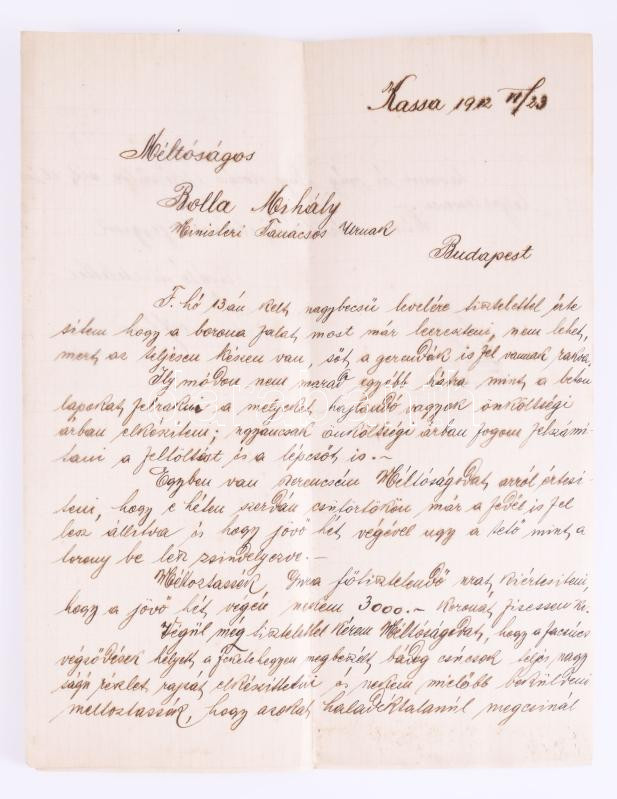 Kassa 1912 VI/23
Méltóságos
Bolla Mihály
Ministeri Tanácsos Urnak
Budapest
F. hó 13án kelt, nagybecsű levelére tisztelettel érte
sitem hogy a borona falat, most már leereszteni, nem lehet,
mert az teljesen készen van, sőt a gerendák is fel vannak rakva.
Ily módon nem marad egyébb hátra mint a beton
lapokat felrakni a melyeket hajlandó vagyok önköltségi
árban elkésziteni; ugyancsak önköltségi árban fogom felszámi-
tani a feltöltést és a lépcsőt is.-
Egyben van szerencsém Méltóságodat, arról értesi-
teni, hogy e héten szerdán csütörtökön, már a fedél is fel
lesz állitva és hogy jövő hét végével ugy a tető mint a
torony be lesz zsindelyezve.-
Méltoztassék, főtisztelendő urat, kiértesiteni,
hogy a jövő hét, végén nekem 3000.- koronát, fizessen ki.
Végül még tisztelettel kérem Méltóságodat, hogy a facsúcs
végződések helyett, a Feketehegyen megbeszélt bádog csúcsok teljes nagy
ságú részlet rajzát, elkészittetni és nekem mielőbb beküldeni
méltoztassék, hogy azokat haladéktalanúl megcsinál